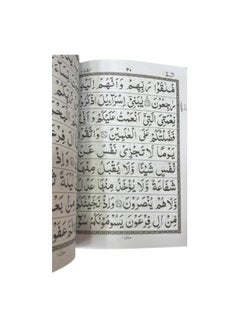 ٣٠
مُّلٰقُوْا رَبِّهِمْ وَاَنَّهُمْ اِلَيْهِ
رٰجِعُوْنَ ۞ يٰبَنِيْٓ اِسْرَآءِيْلَ اذْكُرُوْا
نِعْمَتِيَ الَّتِيْٓ اَنْعَمْتُ عَلَيْكُمْ وَاَنِّيْ
فَضَّلْتُكُمْ عَلَى الْعٰلَمِيْنَ ۞ وَاتَّقُوْا
يَوْمًا لَّا تَجْزِيْ نَفْسٌ عَنْ
نَّفْسٍ شَيْئًا وَّلَا يُقْبَلُ مِنْهَا
شَفَاعَةٌ وَّلَا يُؤْخَذُ مِنْهَا عَدْلٌ
وَّلَا هُمْ يُنْصَرُوْنَ ۞ وَاِذْ نَجَّيْنٰكُمْ
مِّنْ اٰلِ فِرْعَوْنَ يَسُوْمُوْنَكُمْ سُوْٓءَ